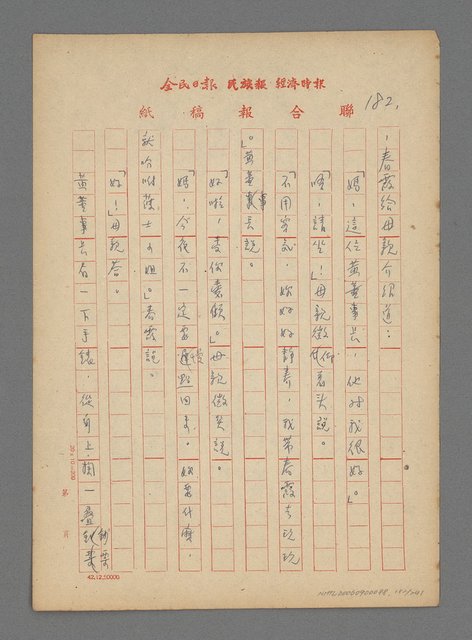 全民日報 民族報 經濟時報
182.
聯合報稿紙
，春霞給母親介紹道：
「媽，這位黃董事長，他對我很好。」
「嗯，請坐！」母親微仰着頭說。
「不用客氣，妳好好靜養，我帶春霞去玩玩
。」黃董事長說。
「好啦，麥你煮顧。」母親微笑說。
「媽，今夜不一定要慢點回來。妳要什麼，
就吩咐護士小姐。」春霞說。
「好！」母親答。
黃董事長看一下手錶，從身上掏一疊鈔票
20×10=200
第 頁
42.12.50000
NMTL20050900098, 182/241